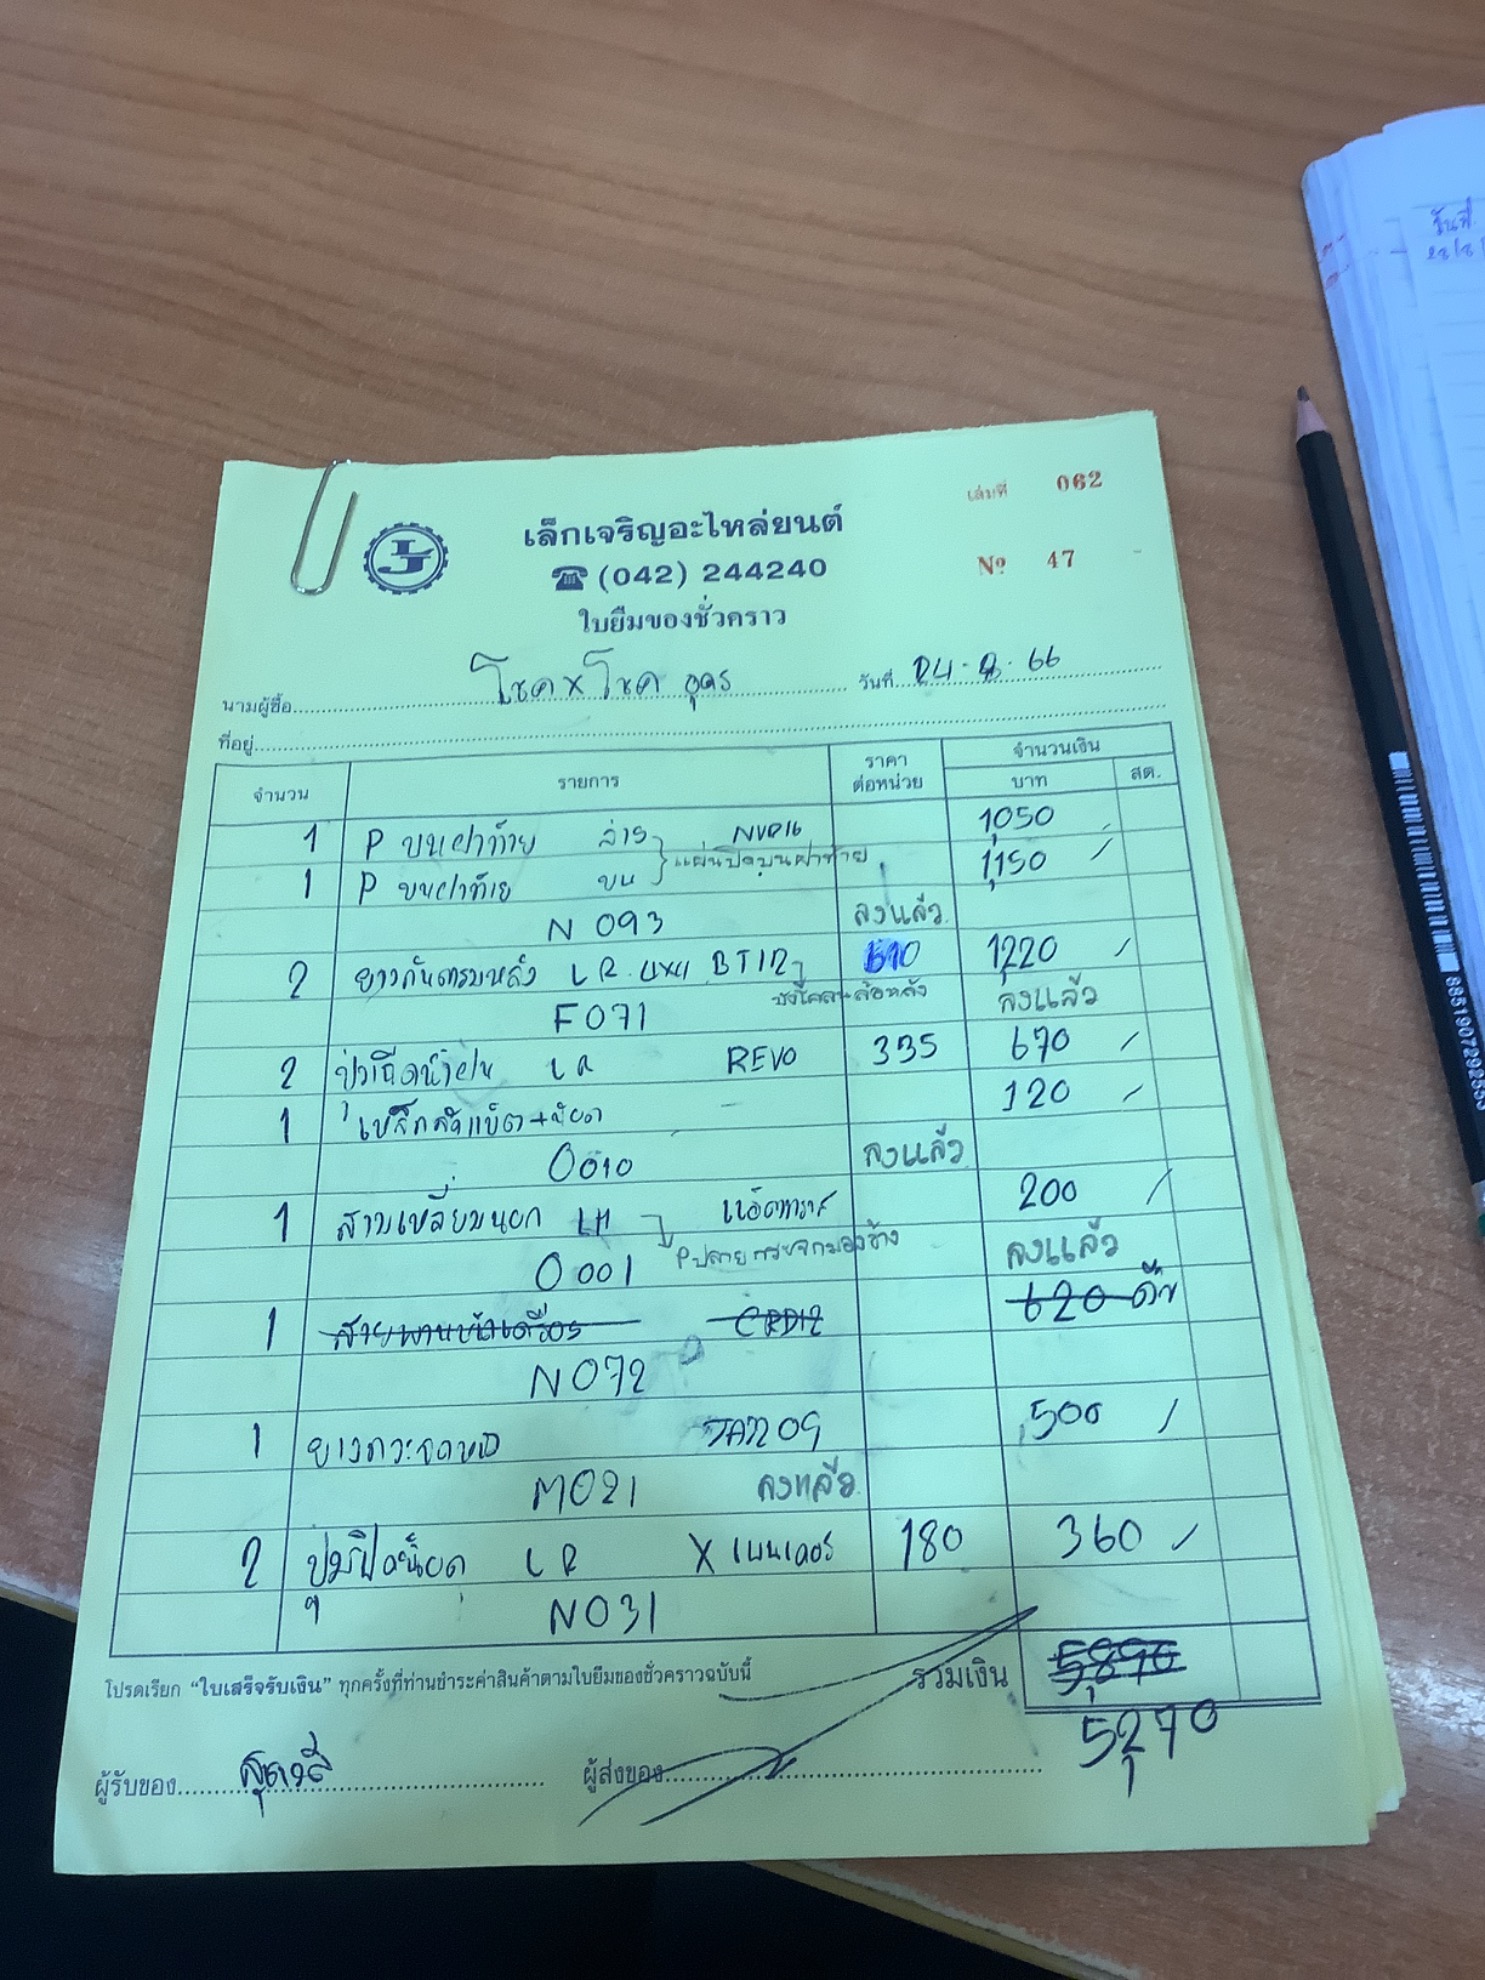 เล่มที่ 062
เล็กเจริญอะไหล่ยนต์
☎ (042) 244240
Nº 47
ใบยืมของชั่วคราว
นามผู้ซื้อ โชค x โชค อุดร วันที่ 24-8-66
ที่อยู่
จำนวน รายการ ราคาต่อหน่วย จำนวนเงิน
บาท สต.
1 P บนฝาท้าย ล่าง 1,050
แผ่นปิดบนฝาท้าย
1 P บนฝาท้าย บน 1,150
N 093 ลงแล้ว
2 ยางกันโคลนหลัง LR BT12 610 1,220
บังโคลนล้อหลัง
F071 ลงแล้ว
2 LR REVO 335 670
1 120
0010 ลงแล้ว
1 สามเหลี่ยมนอก LH 200
P ปลายกระจกมองข้าง
0001 ลงแล้ว
1 สายพานหน้าเครื่อง CRD12 620 คืน
N072
1 500
M021 ลงแล้ว
2 LR 180 360
N031
โปรดเรียก “ใบเสร็จรับเงิน” ทุกครั้งที่ท่านชำระค่าสินค้าตามใบยืมของชั่วคราวฉบับนี้ รวมเงิน 5,890
5,270
ผู้รับของ ผู้ส่งของ
วันที่
8851907292553